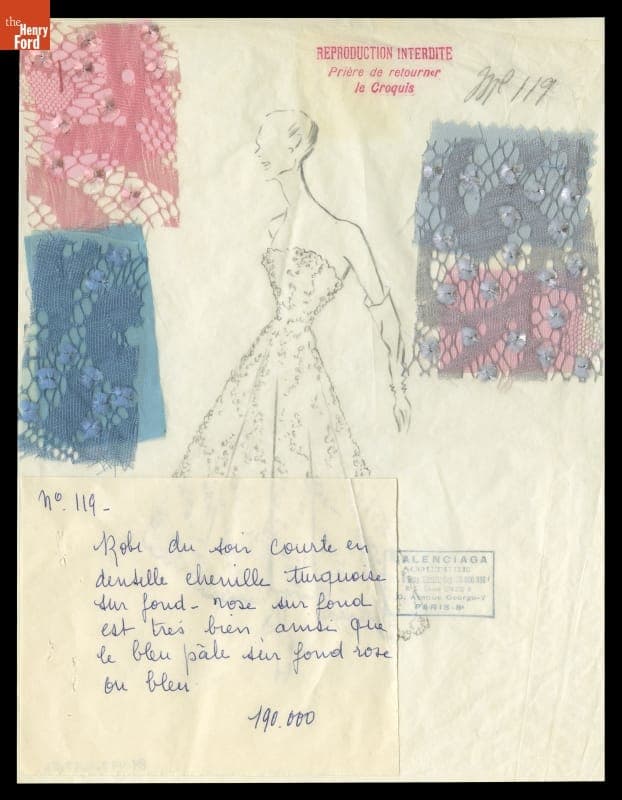 the
Henry
Ford
REPRODUCTION INTERDITE
Prière de retourner
le Croquis
119
Nº. 119 -
Robe du soir courte en
dentelle chenille turquoise
sur fond - rose sur fond
est très bien, ainsi que
le bleu pâle sur fond rose
ou bleu
190.000
BALENCIAGA
10, Avenue George-V
PARIS-8e